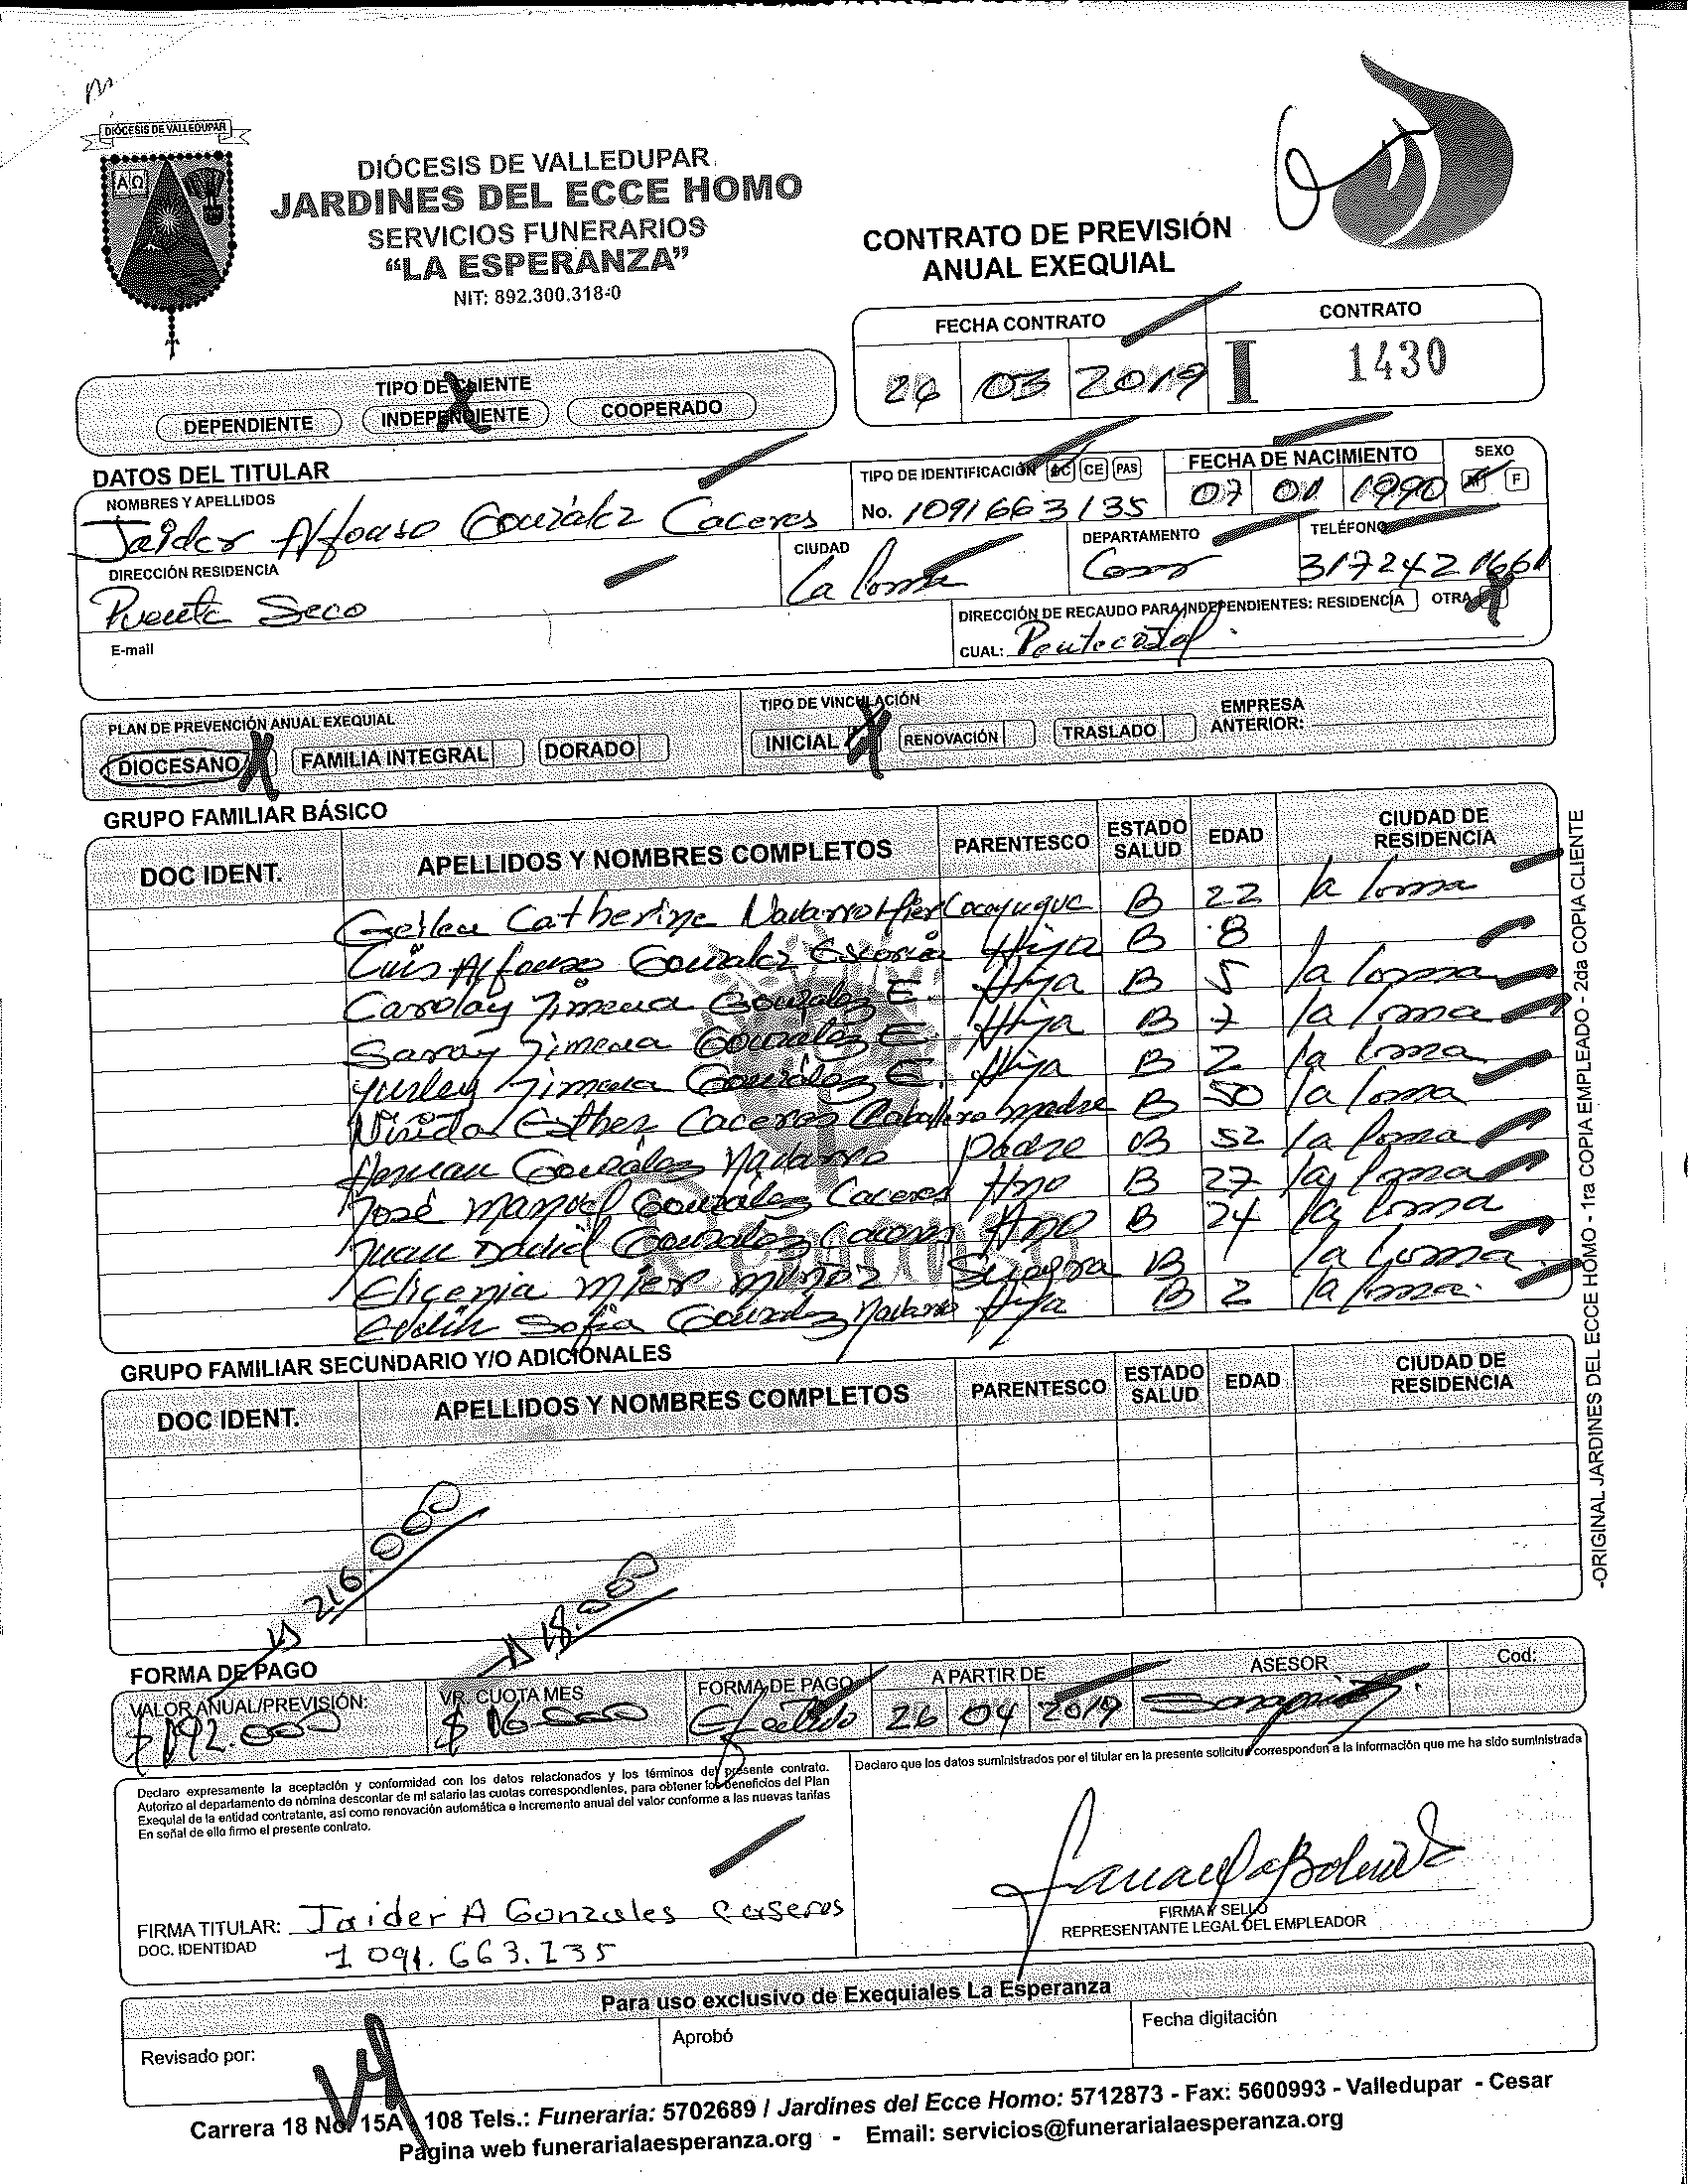 DIÓCESIS DE VALLEDUPAR
DIÓCESIS DE VALLEDUPAR
JARDINES DEL ECCE HOMO
SERVICIOS FUNERARIOS
“LA ESPERANZA”
NIT: 892.300.318-0
CONTRATO DE PREVISIÓN
ANUAL EXEQUIAL
FECHA CONTRATO
CONTRATO
26 03 2019
I 1430
TIPO DE CLIENTE
DEPENDIENTE INDEPENDIENTE X COOPERADO
DATOS DEL TITULAR
NOMBRES Y APELLIDOS
Jaider Alfonso González Caceres
TIPO DE IDENTIFICACIÓN CC CE PAS
No. 1091663135
FECHA DE NACIMIENTO
07 01 1990
SEXO
M F
DIRECCIÓN RESIDENCIA
Puente Seco
CIUDAD
La loma
DEPARTAMENTO
Cesar
TELÉFONO
3172421661
E-mail
DIRECCIÓN DE RECAUDO PARA INDEPENDIENTES: RESIDENCIA OTRA X
CUAL: Pentecostal
PLAN DE PREVENCIÓN ANUAL EXEQUIAL
DIOCESANO X FAMILIA INTEGRAL DORADO
TIPO DE VINCULACIÓN
INICIAL X RENOVACIÓN TRASLADO
EMPRESA
ANTERIOR:
GRUPO FAMILIAR BÁSICO
DOC IDENT. APELLIDOS Y NOMBRES COMPLETOS PARENTESCO ESTADO SALUD EDAD CIUDAD DE RESIDENCIA
Catherine Navarro Mier B 22 la loma
Luis Alfonso Gonzalez Escoria Hijo B 8
Carolay Jimena Gonzalez E. Hija B 5 la loma
Saray Jimena Gonzalez E. Hija B 7 la loma
Yurley Jimena González E. Hija B 2 la loma
Esther Caceres Caballero madre B 50 la loma
Herman González Navarro Padre B 52 la loma
José Manuel González Caceres Hno B 27 la loma
Juan David González Caceres Hno B 24 la loma
Elicenia Mier Muñoz Suegra B la loma
Sofia González Navarro Hija B 2 la loma.
GRUPO FAMILIAR SECUNDARIO Y/O ADICIONALES
DOC IDENT. APELLIDOS Y NOMBRES COMPLETOS PARENTESCO ESTADO SALUD EDAD CIUDAD DE RESIDENCIA
216.000
18.000
FORMA DE PAGO
VALOR ANUAL/PREVISIÓN:
$192.000
VR. CUOTA MES
$ 16.000
FORMA DE PAGO
Efectivo
A PARTIR DE
26 04 2019
ASESOR
Cod:
Declaro expresamente la aceptación y conformidad con los datos relacionados y los términos del presente contrato.
Autorizo al departamento de nómina descontar de mi salario las cuotas correspondientes, para obtener los beneficios del Plan
Exequial de la entidad contratante, así como renovación automática e incremento anual del valor conforme a las nuevas tarifas
En señal de ello firmo el presente contrato.
Declaro que los datos suministrados por el titular en la presente solicitud corresponden a la información que me ha sido suministrada
FIRMA TITULAR: Jaider A Gonzales Caseres
DOC. IDENTIDAD 1 091.663.135
FIRMA Y SELLO
REPRESENTANTE LEGAL DEL EMPLEADOR
Para uso exclusivo de Exequiales La Esperanza
Revisado por:
Aprobó
Fecha digitación
Carrera 18 No. 15A 108 Tels.: Funeraria: 5702689 / Jardines del Ecce Homo: 5712873 - Fax: 5600993 - Valledupar - Cesar
Pagina web funerarialaesperanza.org - Email: servicios@funerarialaesperanza.org
-ORIGINAL JARDINES DEL ECCE HOMO - 1ra COPIA EMPLEADO - 2da COPIA CLIENTE